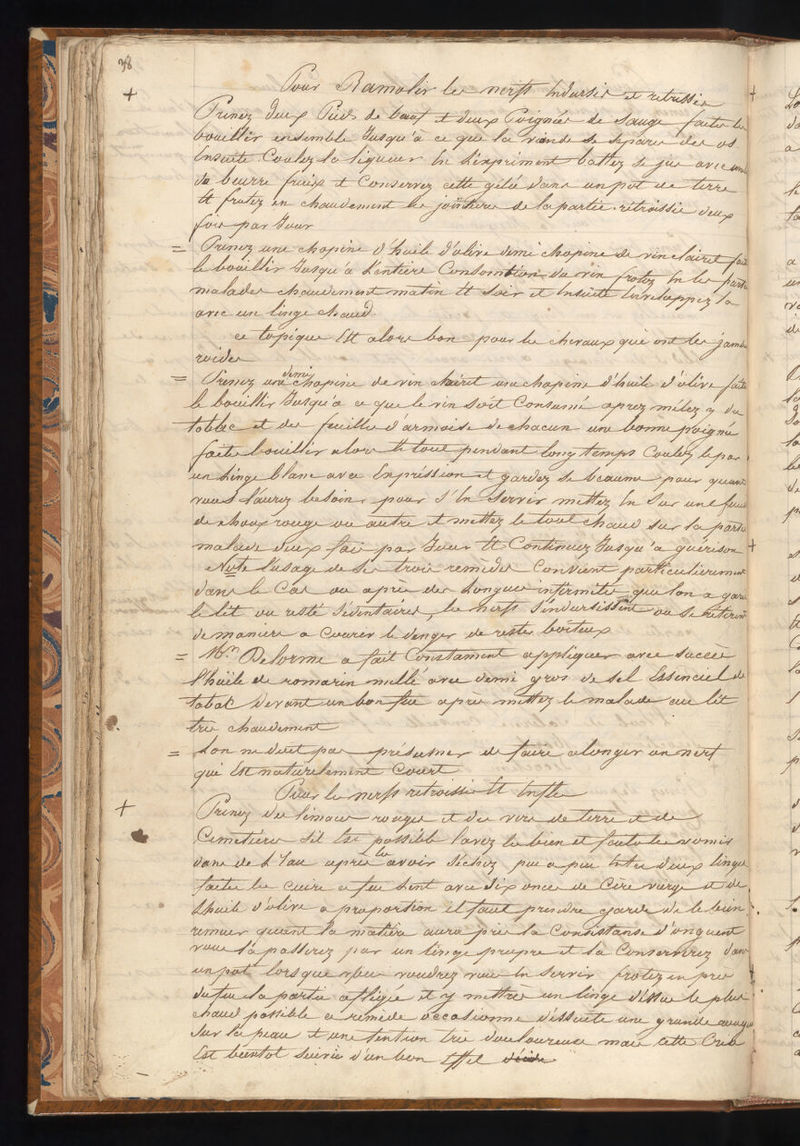 38
Pour Ramolir les nerfs Indursie et retrissie
+ Prenez deux Pieds de bœuf et deux Poignée de Sauge faite les
bouillir ensemble Jusqu'à ce que la viande se separe des os
Ensuite Coulez la liqueur en l'exprimant battez se jus avec
du beurre fraix et Conservez cette gelée dans un pot de terre
Et frotez en chaudement les jointures de la partie rétraissie deux
fois par Jour
= Prenez une chopine d'huile d'olive demi chopine de vin clairet
le bouillir Jusqu'à l'entiere Consomtion du vin frotez En les
malades chaudement matin Et Soir et Ensuite envelappez la
avec un linge chaud
ce topique Est alors bon pour les chevaux qui ont les
roides
= Prenez une demi chopine de vin clairet une chopine d'huile d'olive faite
le bouillir Jusqu'à ce que le vin soit Consumé aprez mélez y du
tobbac et des feuilles d'armoise de chacun une bonne poigné
faite bouillir alors le tout pendant long temps Coulez le par
un Linge blanc avec Expréssion et gardez se beaume pour quand
vous l'aurez besoin pour s'En Servir mettez En Sur une
de choux rouge ou autre et mettez le tout chaud sur la partie
malade deux fois par Jour Et Continuez Jusqu'a guérison
Note l'usage de Ses trois remedes Convient particulierement
dans le Cas ou aprés des Longues infirmités que lon a
le lit ou resté Sédentaires, les nerfs S'endursissent ou se
de maniere a Courir le danger de rester boiteux
= Mr Delorme a fait Constament appliquer avec succès
l'huile de romarin mellé avec demi gros de sel Essenciel de
tabac devant un bon feu après mettez le malade au lit
tres chaudement
= Lon ne doit pas présumer de faire alonger un nerf
qui Est naturelement Court
Pour les nerfs retroissie Et Enfle
+ Prenez des limaces rouges et des vers de terre et de
Cimetière s'il Est possible lavez les bien et faite les vomir
dans de L'Eau après les avoir séchez peu a peu entre deux linges
faite les cuire a feu lent avec dix once de Cire vierge et de
Lhuile d'olive a proportion il faut prendre garde de le bien
remuer quand la matière aura pris la Consistanse d'onguent
vous la passerez par un linge propre et la Conserverez dans
un pot lors que vous voudrez vous En servir frotez en pres
du feu la partie afligée et y mettrez un linge dessus le plus
chaud possible ce remède occasionne d'Essuite une grande
Sur la peau et une tention tres douloureuse mais cette
Est bientot Suivie d'un bon Effet